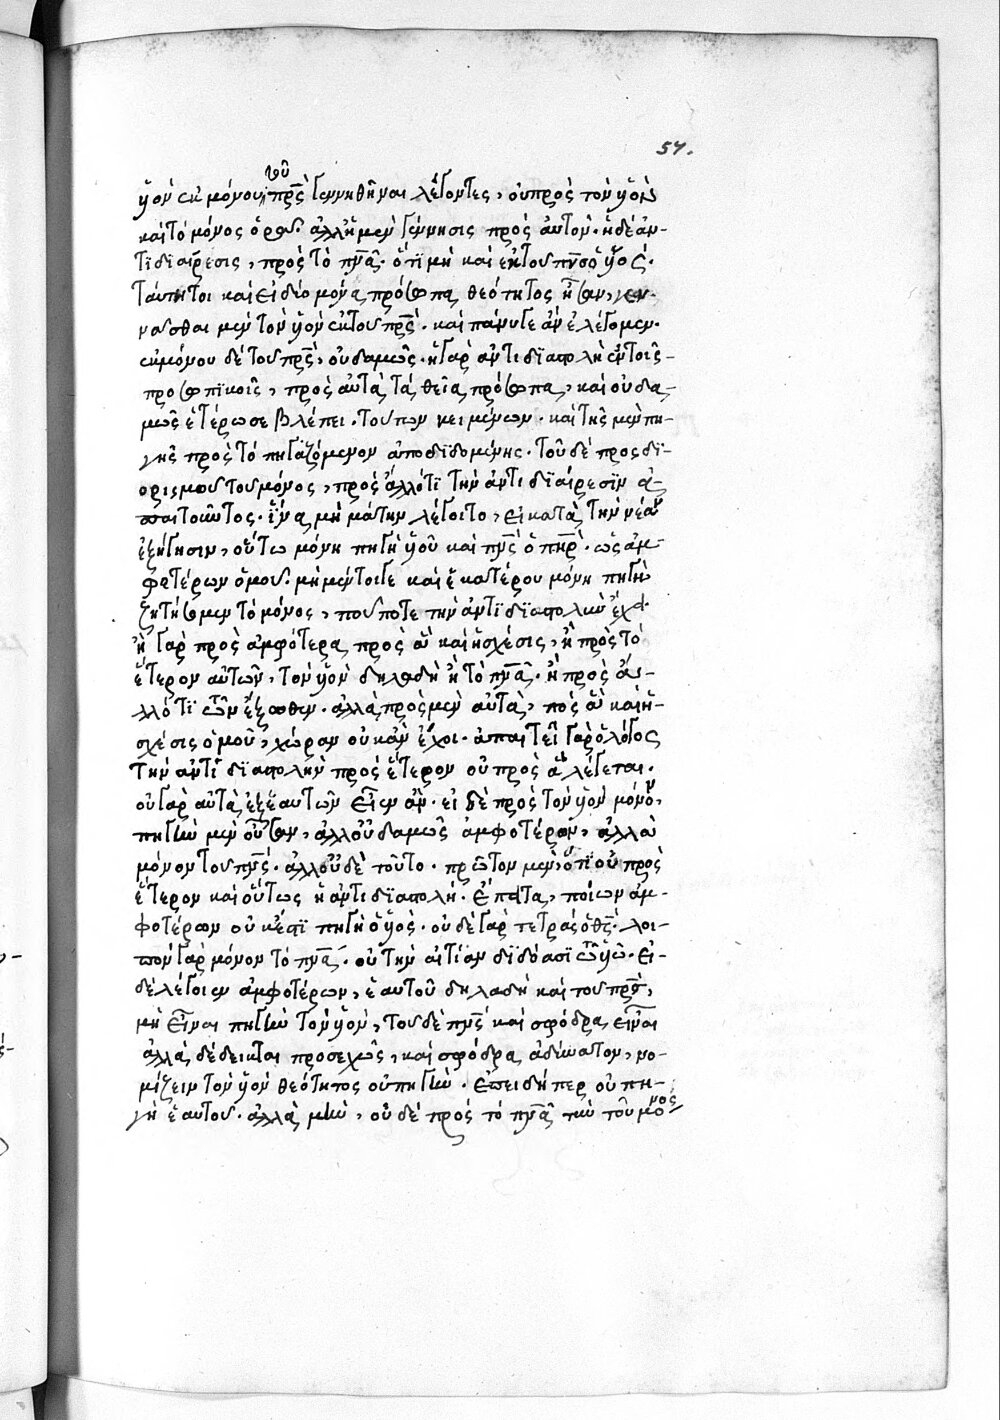 57.
τοῦ
ὑὸν ἐκ μόνου πρς̅ γεννηθῆναι λέγοντες, οὐ πρὸς τὸν ὑὸν
καὶ τὸ μόνος ὁρῶσι. ἀλλ' ἡ μὲν γέννησις πρὸς αὐτόν. ἡ δὲ ἀν-
τιδιαίρεσις, πρὸς τὸ πν̅α̅. ὅτι μὴ καὶ ἐκ τοῦ πν̅ς̅ ὁ ὑός.
ταύτητοι καὶ εἰ δύο μόνα πρόσωπα θεότητος ἦσαν, γεν-
νᾶσθαι μὲν τὸν ὑὸν ἐκ τοῦ πρς̅. καὶ πάνυ γε ἂν ἐλέγομεν.
ἐκ μόνου δὲ τοῦ πρς̅, οὐδαμῶς. ἡ γὰρ ἀντιδιαστολὴ ἐν τοῖς
προσωπικοῖς, πρὸς αὐτὰ τὰ θεῖα πρόσωπα, καὶ οὐδα-
μῶς ἑτέρωσε βλέπει. τούτων κειμένων. καὶ τῆς μὲν πη-
γῆς πρὸς τὸ πηγαζόμενον ἀποδιδομένης. τοῦ δὲ προσδι-
ορισμοῦ τοῦ μόνος, πρὸς ἄλλό τι τὴν ἀντιδιαίρεσιν ἀ-
παιτοῦντος. ἵνα μὴ μάτην λέγοιτο, εἰ κατὰ τὴν νέαν
ἐξήγησιν, οὕτω μόνη πηγὴ ὑοῦ καὶ πν̅ς̅ ὁ πη̅ρ̅. ὡς ἀμ-
φοτέρων ὁμοῦ. μὴ μέντοιγε καὶ ἑκατέρου μόνη πηγὴ
ζητήσωμεν τὸ μόνος, ποῦ ποτε τὴν ἀντιδιαστολὴν ἔχει.
ἢ γὰρ πρὸς ἀμφότερα πρὸς ἃ καὶ ἡ σχέσις, ἢ πρὸς τὸ
ἕτερον αὐτῶν, τὸν ὑὸν δηλαδὴ ἢ τὸ πν̅α̅. ἢ πρὸς ἄλ-
λλό τι τῶν ἔξωθεν. ἀλλὰ πρὸς μὲν αὐτὰ, πρὸς ἃ καὶ ἡ
σχέσις ὁμοῦ, χώραν οὐκ ἂν ἔχοι. ἀπαιτεῖ γὰρ ὁ λόγος
τὴν ἀντιδιαστολὴν πρὸς ἕτερον οὐ πρὸς ἃ λέγεται.
οὐ γὰρ αὐτὰ ἐξ ἑαυτῶν εἶεν ἄν. εἰ δὲ πρὸς τὸν ὑὸν μόνον,
πηγὴν μὲν οὖσαν, ἀλλ' οὐδαμῶς ἀμφοτέρων, ἀλλὰ
μόνον τοῦ πν̅ς̅. ἀλλ' οὐδὲ τοῦτο. πρῶτον μὲν, ὅτι οὐ πρὸς
ἕτερον καὶ οὕτως ἡ ἀντιδιαστολή. ἔπειτα, ποίων ἀμ-
φοτέρων οὐκ ἔστι πηγὴ ὁ ὑός. οὐδὲ γὰρ τετρὰς ὁ θς̅. λοι-
πὸν γὰρ μόνον τὸ πν̅α̅. οὗ τὴν αἰτίαν διδόασι τῶ ὑῶ. εἰ
δὲ λέγοιεν ἀμφοτέρων, ἑαυτοῦ δηλαδὴ καὶ τοῦ πρς̅,
μὴ εἶναι πηγὴν τὸν ὑὸν, τοῦ δὲ πν̅ς̅ καὶ σφόδρα εἶναι
ἀλλὰ δέδεικται προσεχῶς, καὶ σφόδρα ἀδύνατον, νο-
μίζειν τὸν ὑὸν θεότητος οὐ πηγὴν. ἐπειδήπερ οὐ πη-
γὴ ἑαυτοῦ. ἀλλὰ μὴν, οὐδὲ πρὸς τὸ πν̅α̅ τὴν τοῦ μόνος